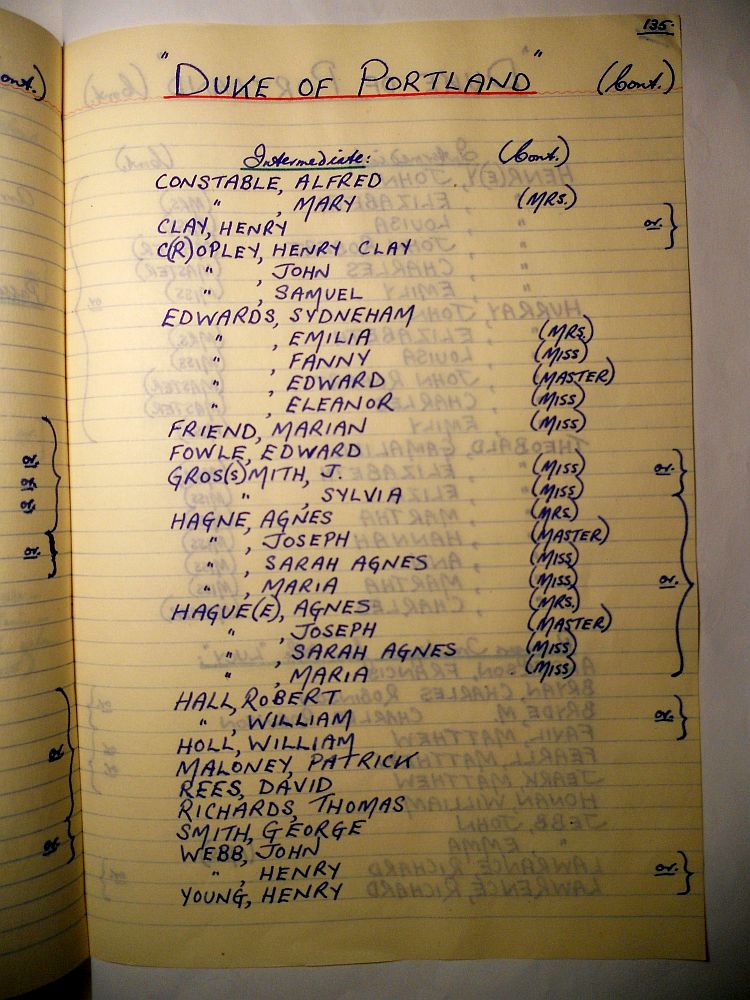 135.
"DUKE OF PORTLAND" (Cont.)
Intermediate: (Cont.)
CONSTABLE, ALFRED
" , MARY (MRS.)
CLAY, HENRY or.
C(R)OPLEY, HENRY CLAY
" , JOHN
" , SAMUEL
EDWARDS, SYDNEHAM
" , EMILIA (MRS.)
" , FANNY (MISS)
" , EDWARD (MASTER)
" , ELEANOR (MISS)
FRIEND, MARIAN (MISS)
FOWLE, EDWARD
GROS(S)MITH, J. (MISS) or.
" , SYLVIA (MISS)
HAGNE, AGNES (MRS.)
" , JOSEPH (MASTER)
" , SARAH AGNES (MISS)
" , MARIA (MISS) or.
HAGUE(E), AGNES (MRS.)
" , JOSEPH (MASTER)
" , SARAH AGNES (MISS)
" , MARIA (MISS)
HALL, ROBERT
" , WILLIAM or.
HOLL, WILLIAM
MALONEY, PATRICK
REES, DAVID
RICHARDS, THOMAS
SMITH, GEORGE
WEBB, JOHN
" , HENRY or.
YOUNG, HENRY